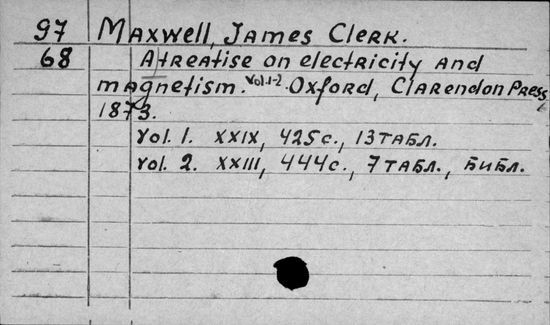 97 Maxwell, James Clerk.
68 A treatise on electricity and
magnetism. Vol.1-2. Oxford, Clarendon Press,
1873.
Vol. 1. XXIX, 425с., 13 табл.
Vol. 2. XXIII, 444с., 7 табл., библ.